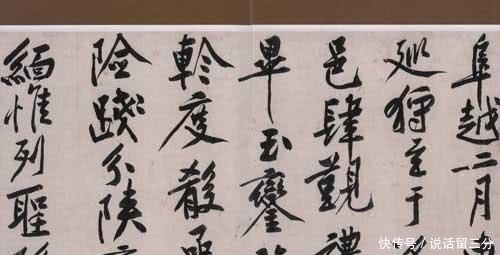 阜越二月
廵狩至于
邑肆覲禮
畢玉鑾
軫度殽
險踐分陝
緬惟列聖
快传号/说话留三分